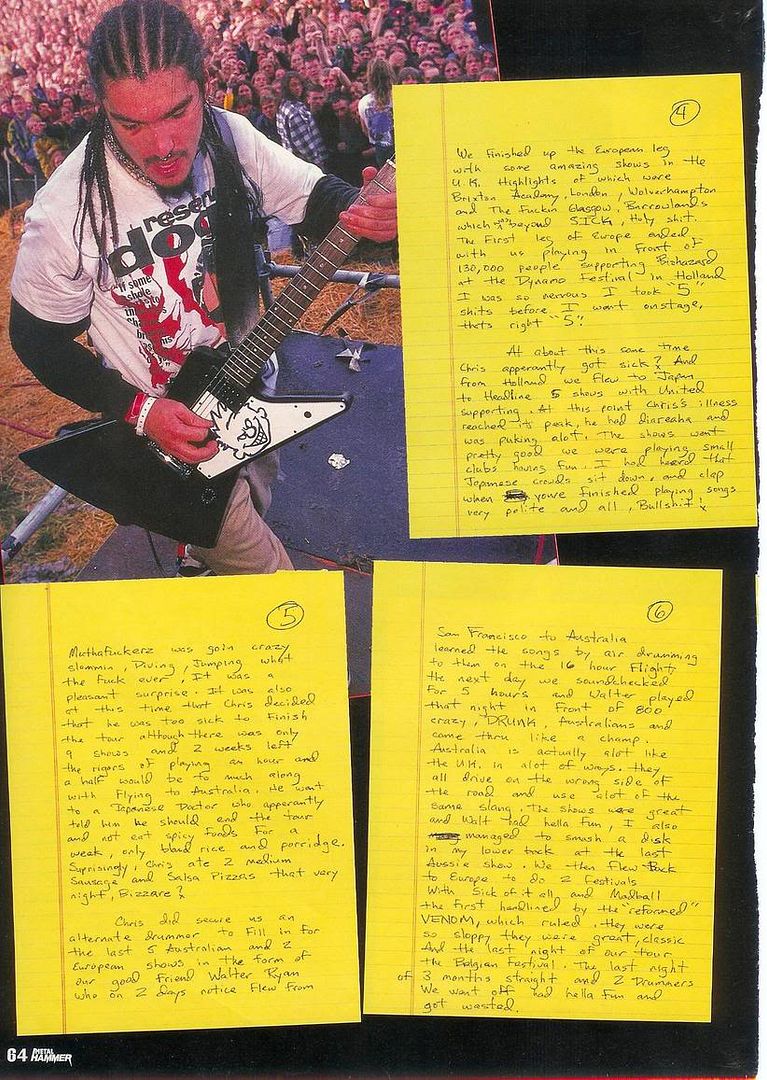 reser
dog
"if some
4
We finished up the European leg
with some amazing shows in the
U.K. Highlights of which were
Brixton Academy, London, Wolverhampton
and The fuckin Glasgow, Barrowlands
which was beyond SICK, Holy shit.
The First leg of Europe ended
with us playing in front of
130,000 people supporting Biohazard
at the Dynamo Festival in Holland
I was so nervous I took "5"
shits before I went onstage,
thats right "5".
At about this same time
Chris apperantly got sick? And
from Holland we flew to Japan
to Headline 5 shows with United
supporting. At this point Chris's illness
reached it's peak, he had diareaha and
was puking alot. The shows went
pretty good we were playing small
clubs having fun. I had heard that
Japenese crowds sit down, and clap
when youre finished playing songs
very polite and all, Bullshit!
5
Muthafuckerz was goin crazy
slammin, Diving, Jumping what
the fuck ever, It was a
pleasant surprise. It was also
at this time that Chris decided
that he was too sick to Finish
the tour although there was only
9 shows and 2 weeks left
the rigors of playing an hour and
a half would be to much along
with Flying to Australia. He went
to a Japanese Doctor who apperantly
told him he should end the tour
and not eat spicy foods For a
week, only bland rice and porridge.
Suprisingly, Chris ate 2 medium
Sausage and Salsa Pizzas that very
night, Bizzare?
Chris did secure us an
alternate drummer to Fill in for
the last 5 Australian and 2
European shows in the form of
our good Friend Walter Ryan
who on 2 days notice Flew from
6
San Francisco to Australia
learned the songs by air drumming
to them on the 16 hour Flight.
the next day we soundchecked
For 5 hours and Walter played
that night in Front of 800
crazy, DRUNK, Australians and
came thru like a champ.
Australia is actually alot like
the U.K. in alot of ways. they
all drive on the wrong side of
the road and use alot of the
same slang. The shows were great
and Walt had hella fun, I also
managed to smash a disk
in my lower back at the last
Aussie show. We then flew back
to Europe to do 2 Festivals
With Sick of it all and Madball
the first headlined by the "reformed"
VENOM, which ruled. they were
so sloppy they were great, classic
And the last night of our tour
the Belgian Festival. The last night
of 3 months straight and 2 Drummers
We went off had hella Fun and
got wasted.
64 METAL HAMMER